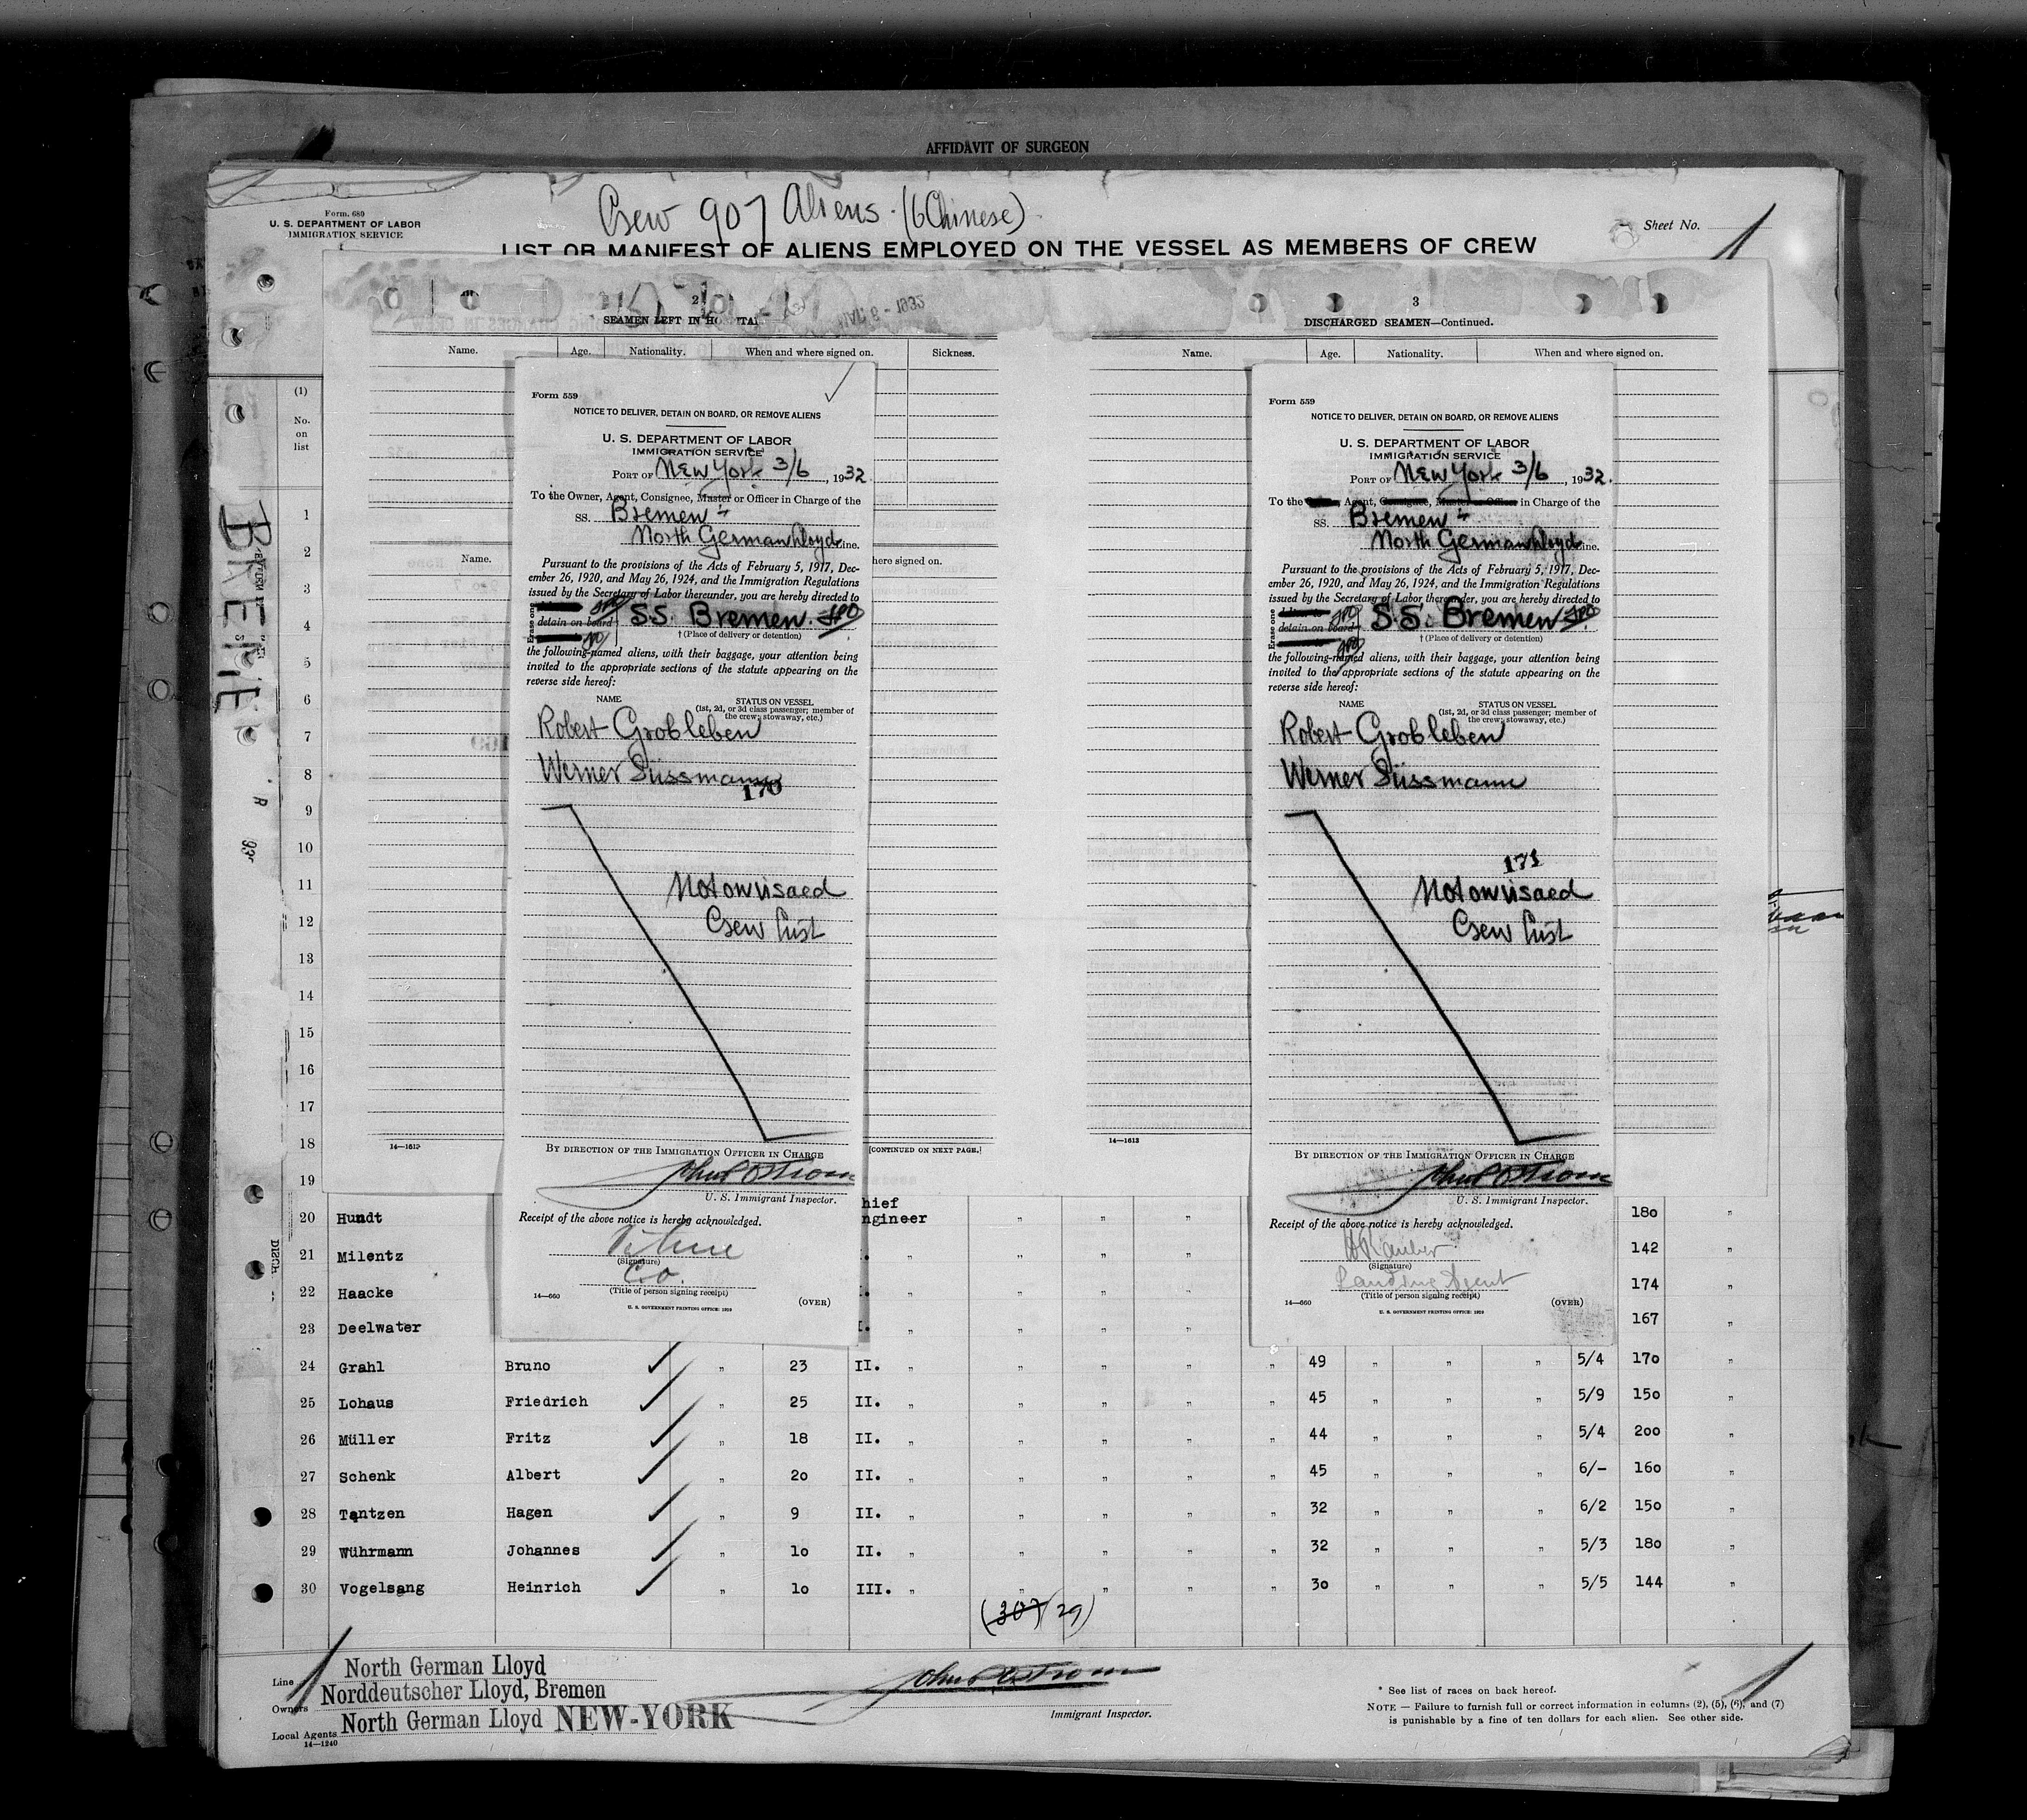 AFFIDAVIT OF SURGEON
Form. 680
U. S. DEPARTMENT OF LABOR
IMMIGRATION SERVICE
Crew 907 Aliens. (6 Chinese)
Sheet No. 1
LIST OR MANIFEST OF ALIENS EMPLOYED ON THE VESSEL AS MEMBERS OF CREW
BREMEN
2
SEAMEN LEFT IN HOSPITAL
Name. Age. Nationality. When and where signed on. Sickness.
Name. here signed on.
14—1613
[CONTINUED ON NEXT PAGE.]
3
DISCHARGED SEAMEN—Continued.
Name. Age. Nationality. When and where signed on.
14—1613
Form 559
NOTICE TO DELIVER, DETAIN ON BOARD, OR REMOVE ALIENS
U. S. DEPARTMENT OF LABOR
IMMIGRATION SERVICE
PORT OF New York 3/6, 1932.
To the Owner, Agent, Consignee, Master or Officer in Charge of the
SS. Bremen
North German Lloyd Line.
Pursuant to the provisions of the Acts of February 5, 1917, Dec-
ember 26, 1920, and May 26, 1924, and the Immigration Regulations
issued by the Secretary of Labor thereunder, you are hereby directed to
Erase one
detain on board
S.S. Bremen.
† (Place of delivery or detention)
the following-named aliens, with their baggage, your attention being
invited to the appropriate sections of the statute appearing on the
reverse side hereof:
NAME STATUS ON VESSEL
(1st, 2d, or 3d class passenger; member of
the crew; stowaway, etc.)
Robert Grobleben
Werner Süssmann
170
Not on visaed
Crew List
BY DIRECTION OF THE IMMIGRATION OFFICER IN CHARGE
John P Ostrom
U. S. Immigrant Inspector.
Receipt of the above notice is hereby acknowledged.
(Signature)
C.O.
(Title of person signing receipt)
14—660
(OVER)
U. S. GOVERNMENT PRINTING OFFICE: 1929
Form 559
NOTICE TO DELIVER, DETAIN ON BOARD, OR REMOVE ALIENS
U. S. DEPARTMENT OF LABOR
IMMIGRATION SERVICE
PORT OF New York 3/6, 1932.
To the Agent, in Charge of the
SS. Bremen
North German Lloyd Line.
Pursuant to the provisions of the Acts of February 5, 1917, Dec-
ember 26, 1920, and May 26, 1924, and the Immigration Regulations
issued by the Secretary of Labor thereunder, you are hereby directed to
Erase one
detain on board
S.S. Bremen
† (Place of delivery or detention)
the following-named aliens, with their baggage, your attention being
invited to the appropriate sections of the statute appearing on the
reverse side hereof:
NAME STATUS ON VESSEL
(1st, 2d, or 3d class passenger; member of
the crew; stowaway, etc.)
Robert Grobleben
Werner Süssmann
171
Not on visaed
Crew List
BY DIRECTION OF THE IMMIGRATION OFFICER IN CHARGE
John P Ostrom
U. S. Immigrant Inspector.
Receipt of the above notice is hereby acknowledged.
(Signature)
Landing Agent
(Title of person signing receipt)
14—660
(OVER)
U. S. GOVERNMENT PRINTING OFFICE: 1929
(1)
No.
on
list
1
2
3
4
5
6
7
8
9
10
11
12
13
14
15
16
17
18
19
20 Hundt hief ngineer " " " 180 "
21 Milentz " " " " 142 "
22 Haacke " " " " 174 "
23 Deelwater I. " " " " 167 "
24 Grahl Bruno " 23 II. " " " " " 49 " " " 5/4 170 "
25 Lohaus Friedrich " 25 II. " " " " " 45 " " " 5/9 150 "
26 Müller Fritz " 18 II. " " " " " 44 " " " 5/4 200 "
27 Schenk Albert " 20 II. " " " " " 45 " " " 6/- 160 "
28 Tantzen Hagen " 9 II. " " " " " 32 " " " 6/2 150 "
29 Wührmann Johannes " 10 II. " " " " " 32 " " " 5/3 180 "
30 Vogelsang Heinrich " 10 III. " " " " " 30 " " " 5/5 144 "
(30) (29)
Line North German Lloyd
Owners Norddeutscher Lloyd, Bremen
Local Agents North German Lloyd NEW-YORK
14—1240
John P Ostrom
Immigrant Inspector.
* See list of races on back hereof.
NOTE — Failure to furnish full or correct information in columns (2), (5), (6), and (7)
is punishable by a fine of ten dollars for each alien. See other side.